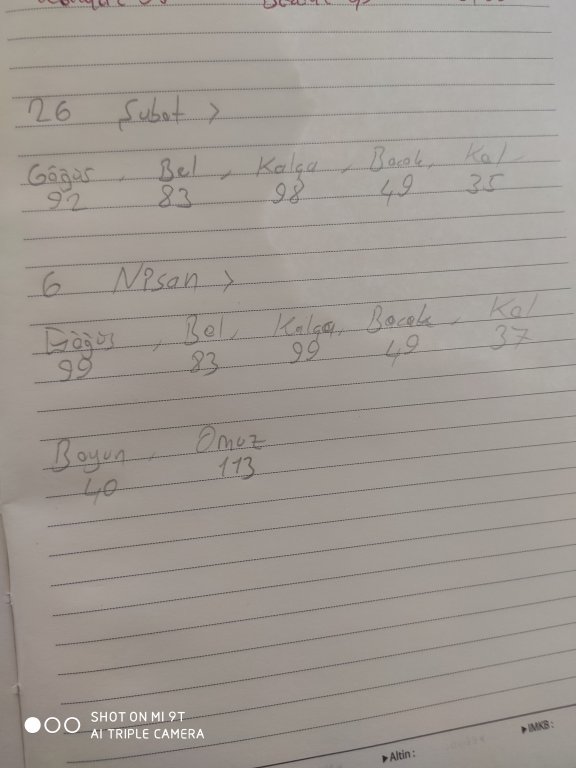 26 Şubat >
Göğüs, Bel, Kalça, Bacak, Kol
92 83 98 49 35
6 Nisan >
Göğüs, Bel, Kalça, Bacak, Kol
99 83 99 49 37
Boyun, Omuz
40 113
SHOT ON MI 9T
AI TRIPLE CAMERA
▶Altın :
▶IMKB :